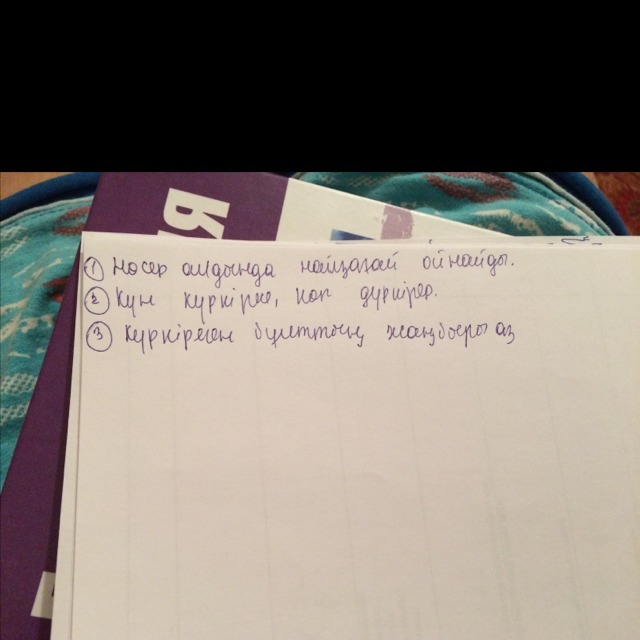 ① Нөсер алдында найзағай ойнайды.
② Күн күркіресе, көк дүркірер.
③ Күркіреген бұлттың жаңбыры аз